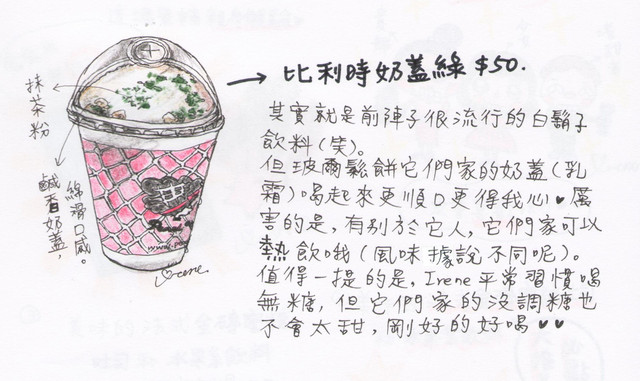 比利時奶蓋綠 $50.
其實就是前陣子很流行的白鬍子
飲料(笑)。
但玻爾鬆餅它們家的奶蓋(乳
霜)喝起來更順口更得我心♥厲
害的是,有別於它人,它們家可以
熱飲哦(風味據說不同呢)。
值得一提的是,Irene平常習慣喝
無糖,但它們家的沒調糖也
不會太甜,剛好的好喝♥♥
抹茶粉
鹹香奶蓋,
綿滑口感。
Irene